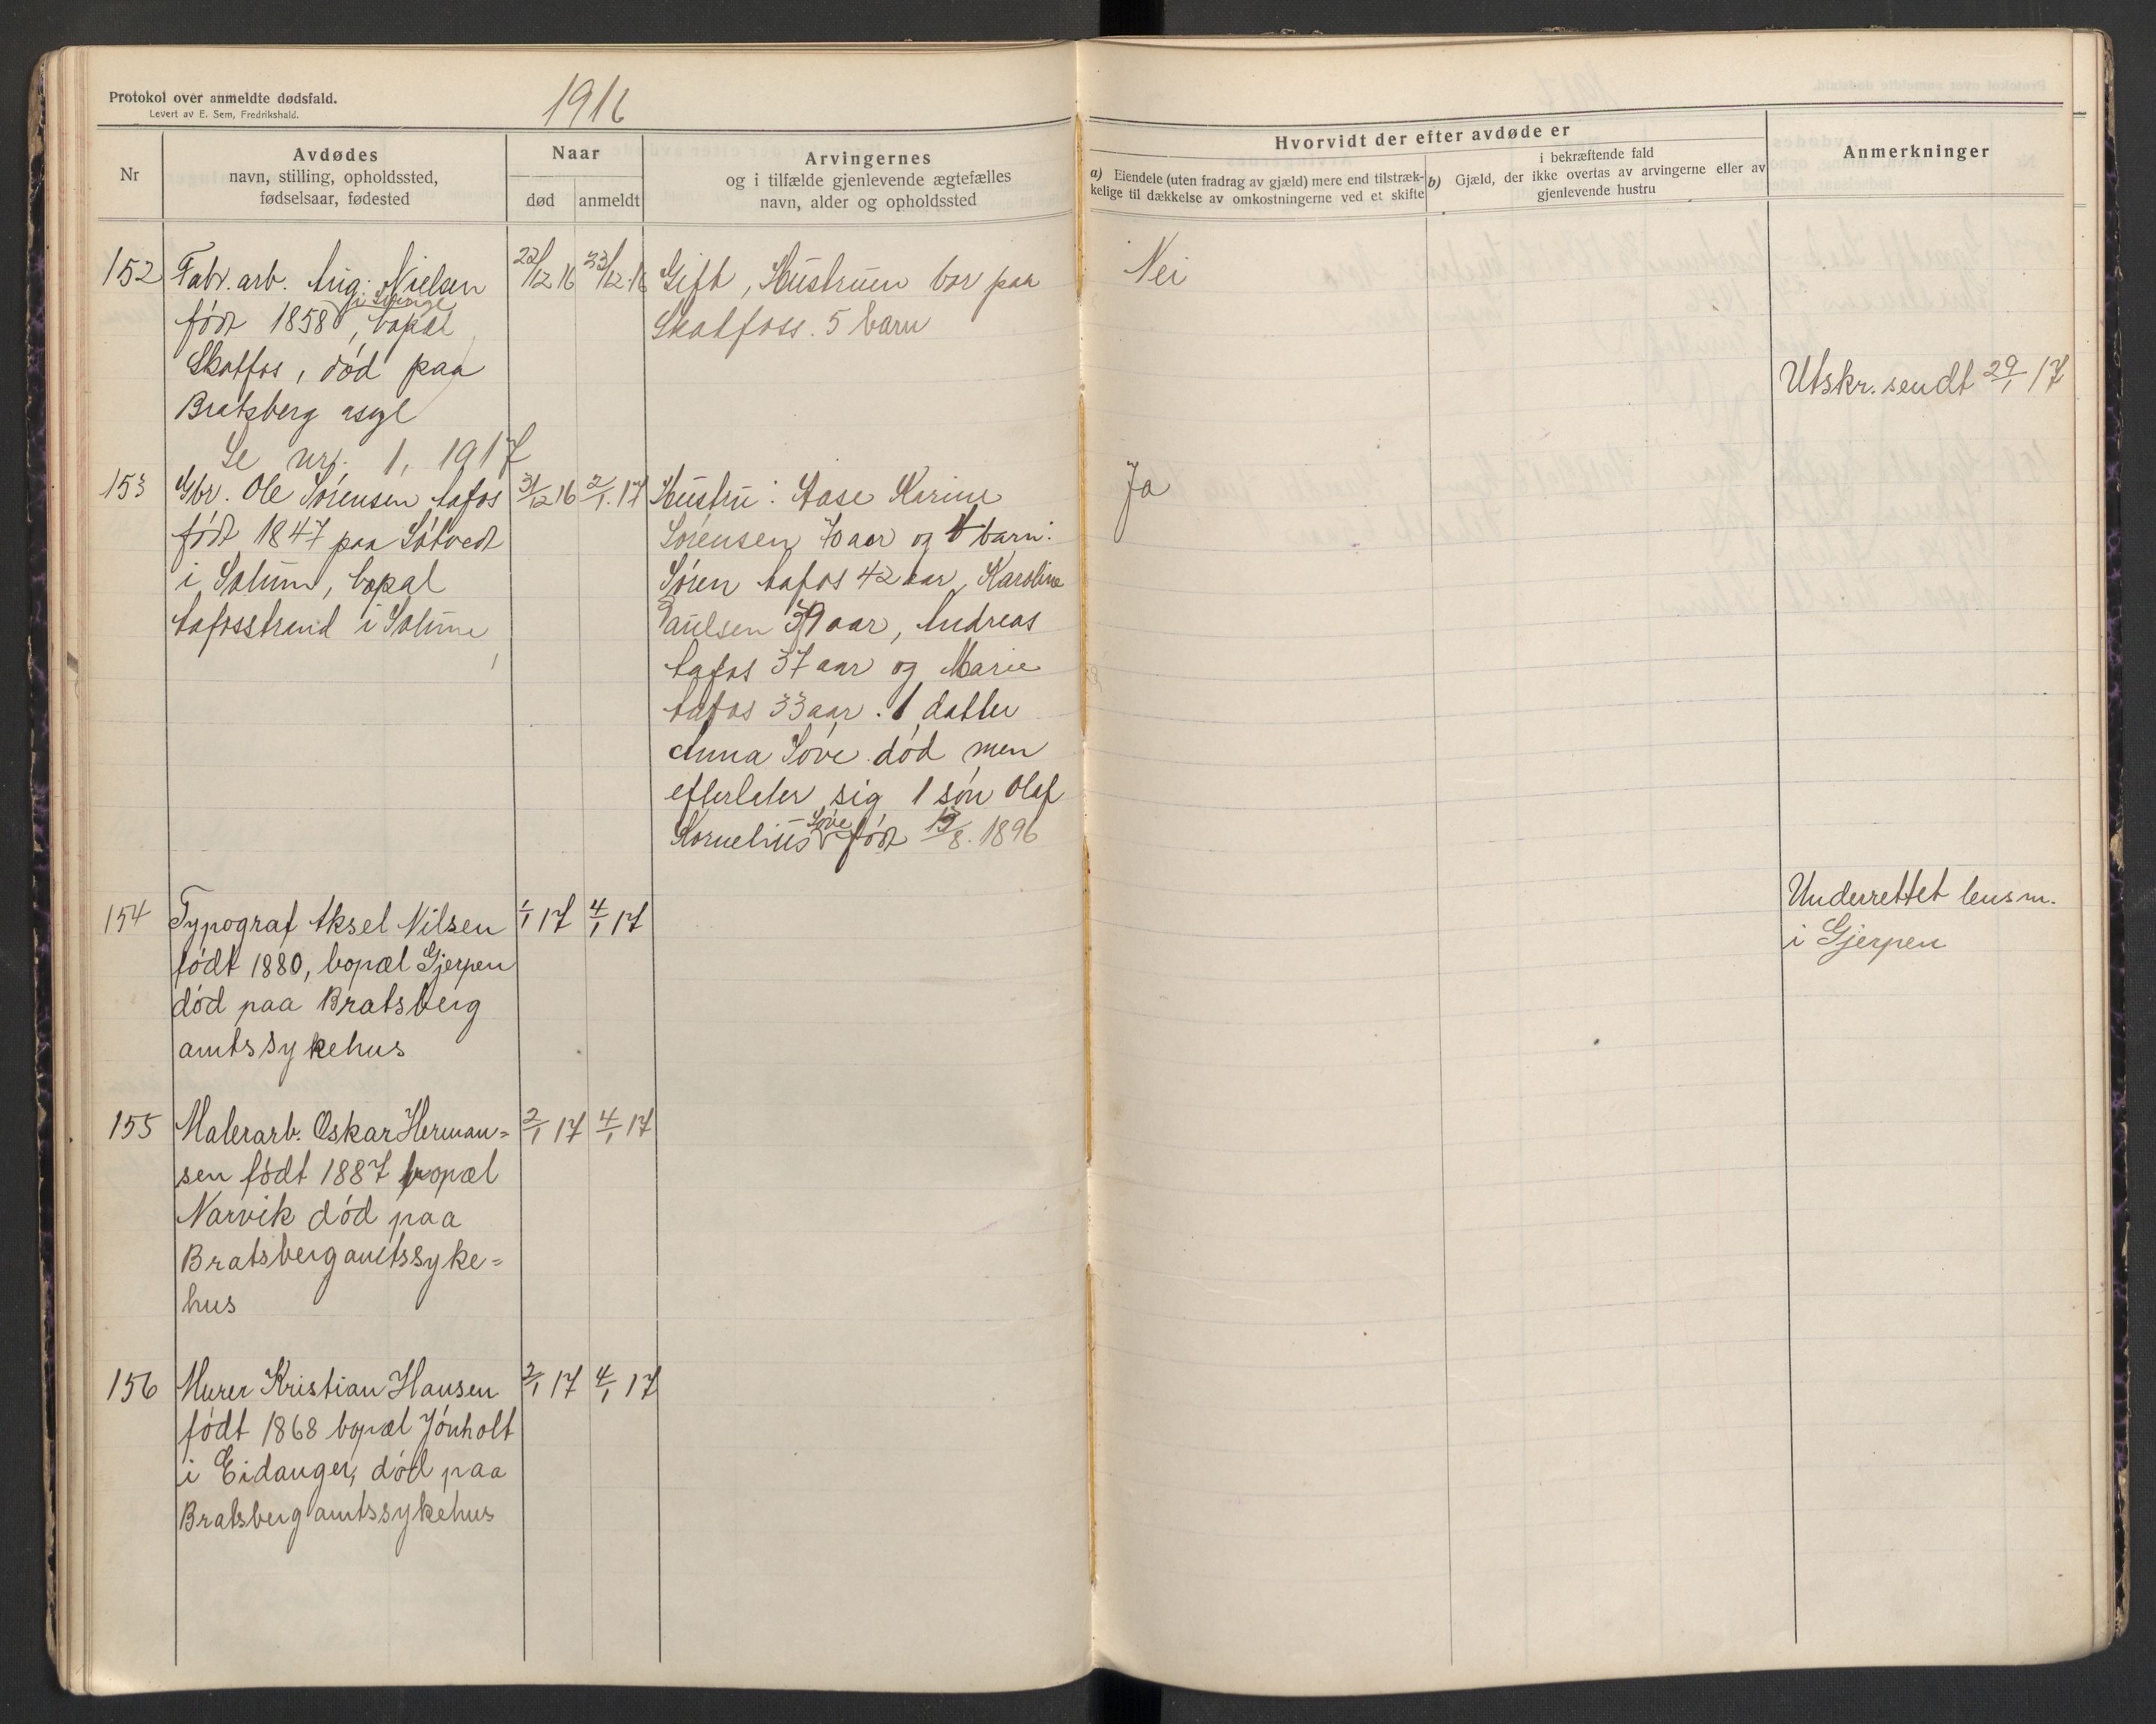 Protokol over anmeldte dødsfald.
Levert av E. Sem, Fredrikshald.
1916
Nr
Avdødes
navn, stilling, opholdssted,
fødselsaar, fødested
Naar
død
anmeldt
Arvingernes
og i tilfælde gjenlevende ægtefælles
navn, alder og opholdssted
Hvorvidt der efter avdøde er
a) Eiendele (uten fradrag av gjæld) mere end tilstræk-
kelige til dækkelse av omkostningerne ved et skifte
i bekræftende fald
b) Gjæld, der ikke overtas av arvingerne eller av
gjenlevende hustru
Anmerkninger
152
Fabr. arb. Aug. Nielsen
i Sverige
født 1858, bopæl
Skotfos, død paa
Bratsberg asyl
22/12 16
23/12. 16
Gift, Hustruen bor paa
Skotfoss. 5 barn
Nei
Utskr. sendt 29/1 17
Se nr. 1, 1917
153
Gbr. Ole Sørensen Aafos
født 1847 paa Søtvedt
i Solum, bopæl
Aafosstrand i Solum
31/12 16
2/1. 17
Hustru: Aase Karine
Sørensen 70 aar og 4 barn:
Søren Aafos 42 aar, Karoline
Paulsen 39 aar, Andreas
Aafos 37 aar og Marie
Aafos 33 aar. 1 datter
Anna Sove død men
efterlater sig 1 søn Olaf
Sove
Kornelius født 13/8. 1896
Ja
154
Typograf Aksel Nilsen
født 1880, bopæl Gjerpen
død paa Bratsberg
amtssykehus
1/1 17
4/1 17
Underrettet lensm.
i Gjerpen
155
Malerarb. Oskar Herman=
sen født 1887 bopæl
Narvik død paa
Bratsberg amtssyke=
hus
2/1 17
4/1 17
156
Murer Kristian Hansen
født 1868 bopæl Jønholt
i Eidanger, død paa
Bratsberg amtssykehus
2/1 17
4/1 17